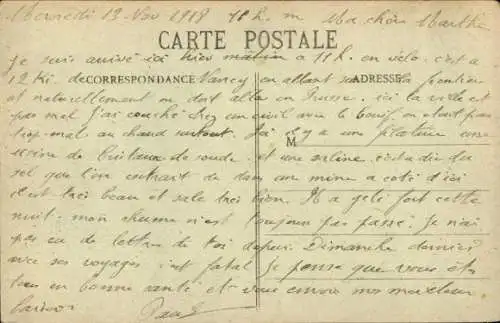 Mercredi 13 Nov 1918 11 h. m Ma chère Marthe
CARTE POSTALE
Je suis arrivé ici hier matin a 11 h. en velo. c'est a
12 Ki de CORRESPONDANCE Nancy en allant sur la ADRESSE
et naturellement on doit aller en Prusse. ici la ville est
pas mal j'ai couché chez un civil avec le on etait pas
trop mal au chaud surtout. il y a une une
M
usine de Cristaux de soude. et une saline. c'est a dire du
sel que l'on extrait de dans une mine a coté d'ici
c'est très beau et sale très bien. Il a gelé fort cette
nuit. mon rhume n'est toujours pas passé. Je n'ai
pas eu de lettre de toi depuis Dimanche dernier
avec ses voyages c'est fatal je pense que vous êtes
tous en bonne santé et vous envoie mes meilleurs
baisers Paul